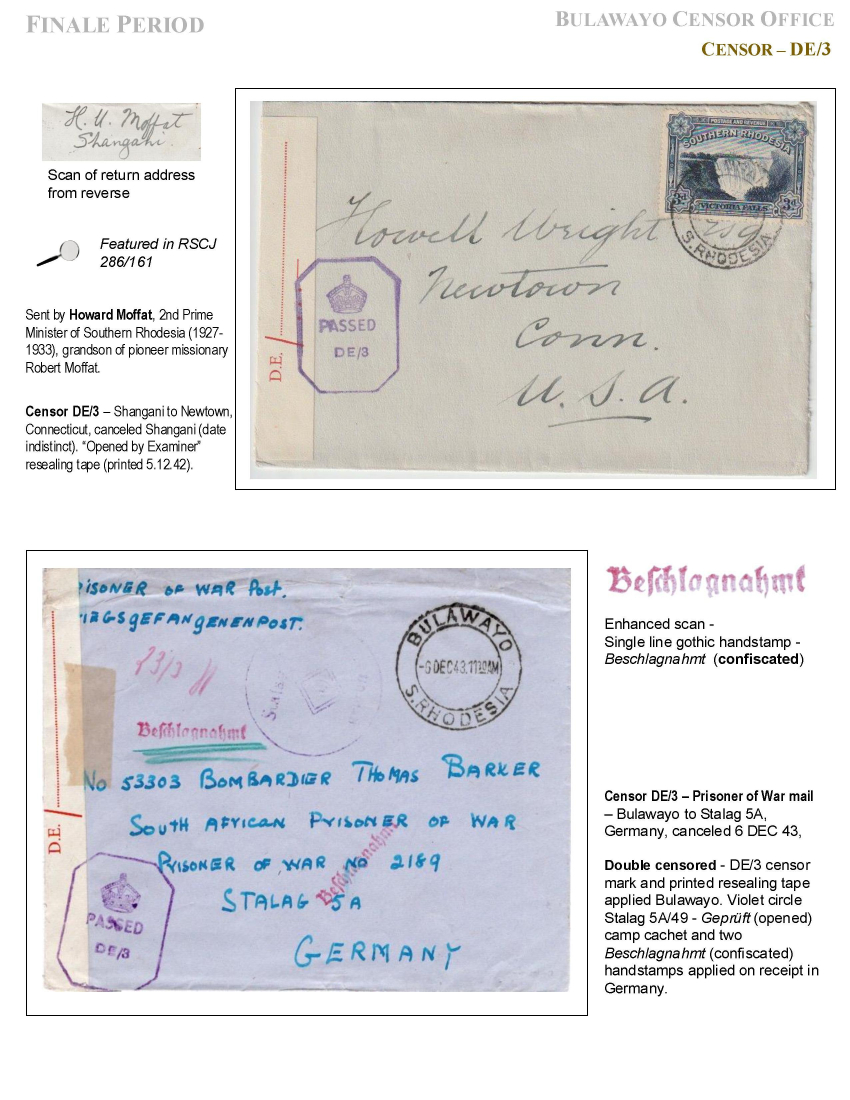 FINALE PERIOD
BULAWAYO CENSOR OFFICE
CENSOR – DE/3
H. U. Moffat
Shangani.
Scan of return address
from reverse
Featured in RSCJ
286/161
Sent by Howard Moffat, 2nd Prime
Minister of Southern Rhodesia (1927-
1933), grandson of pioneer missionary
Robert Moffat.
Censor DE/3 – Shangani to Newtown,
Connecticut, canceled Shangani (date
indistinct). “Opened by Examiner”
resealing tape (printed 5.12.42).
POSTAGE AND REVENUE
SOUTHERN RHODESIA
3d 3d
VICTORIA FALLS
S. RHODESIA
Howell Wright Esq
Newtown
Conn.
U. S. A.
PASSED
DE/3
D.E.
RISONER OF WAR POST.
IEGSGEFANGENENPOST.
23/3
BULAWAYO
-6 DEC 43. 11 30 AM
S. RHODESIA
Beschlagnahmt
No 53303 BOMBARDIER THOMAS BARKER
SOUTH AFRICAN PRISONER OF WAR
PRISONER OF WAR NO 2189
Beschlagnahmt
STALAG 5A
GERMANY
D.E.
PASSED
DE/3
Beschlagnahmt
Enhanced scan -
Single line gothic handstamp -
Beschlagnahmt (confiscated)
Censor DE/3 – Prisoner of War mail
– Bulawayo to Stalag 5A,
Germany, canceled 6 DEC 43,
Double censored - DE/3 censor
mark and printed resealing tape
applied Bulawayo. Violet circle
Stalag 5A/49 - Geprüft (opened)
camp cachet and two
Beschlagnahmt (confiscated)
handstamps applied on receipt in
Germany.